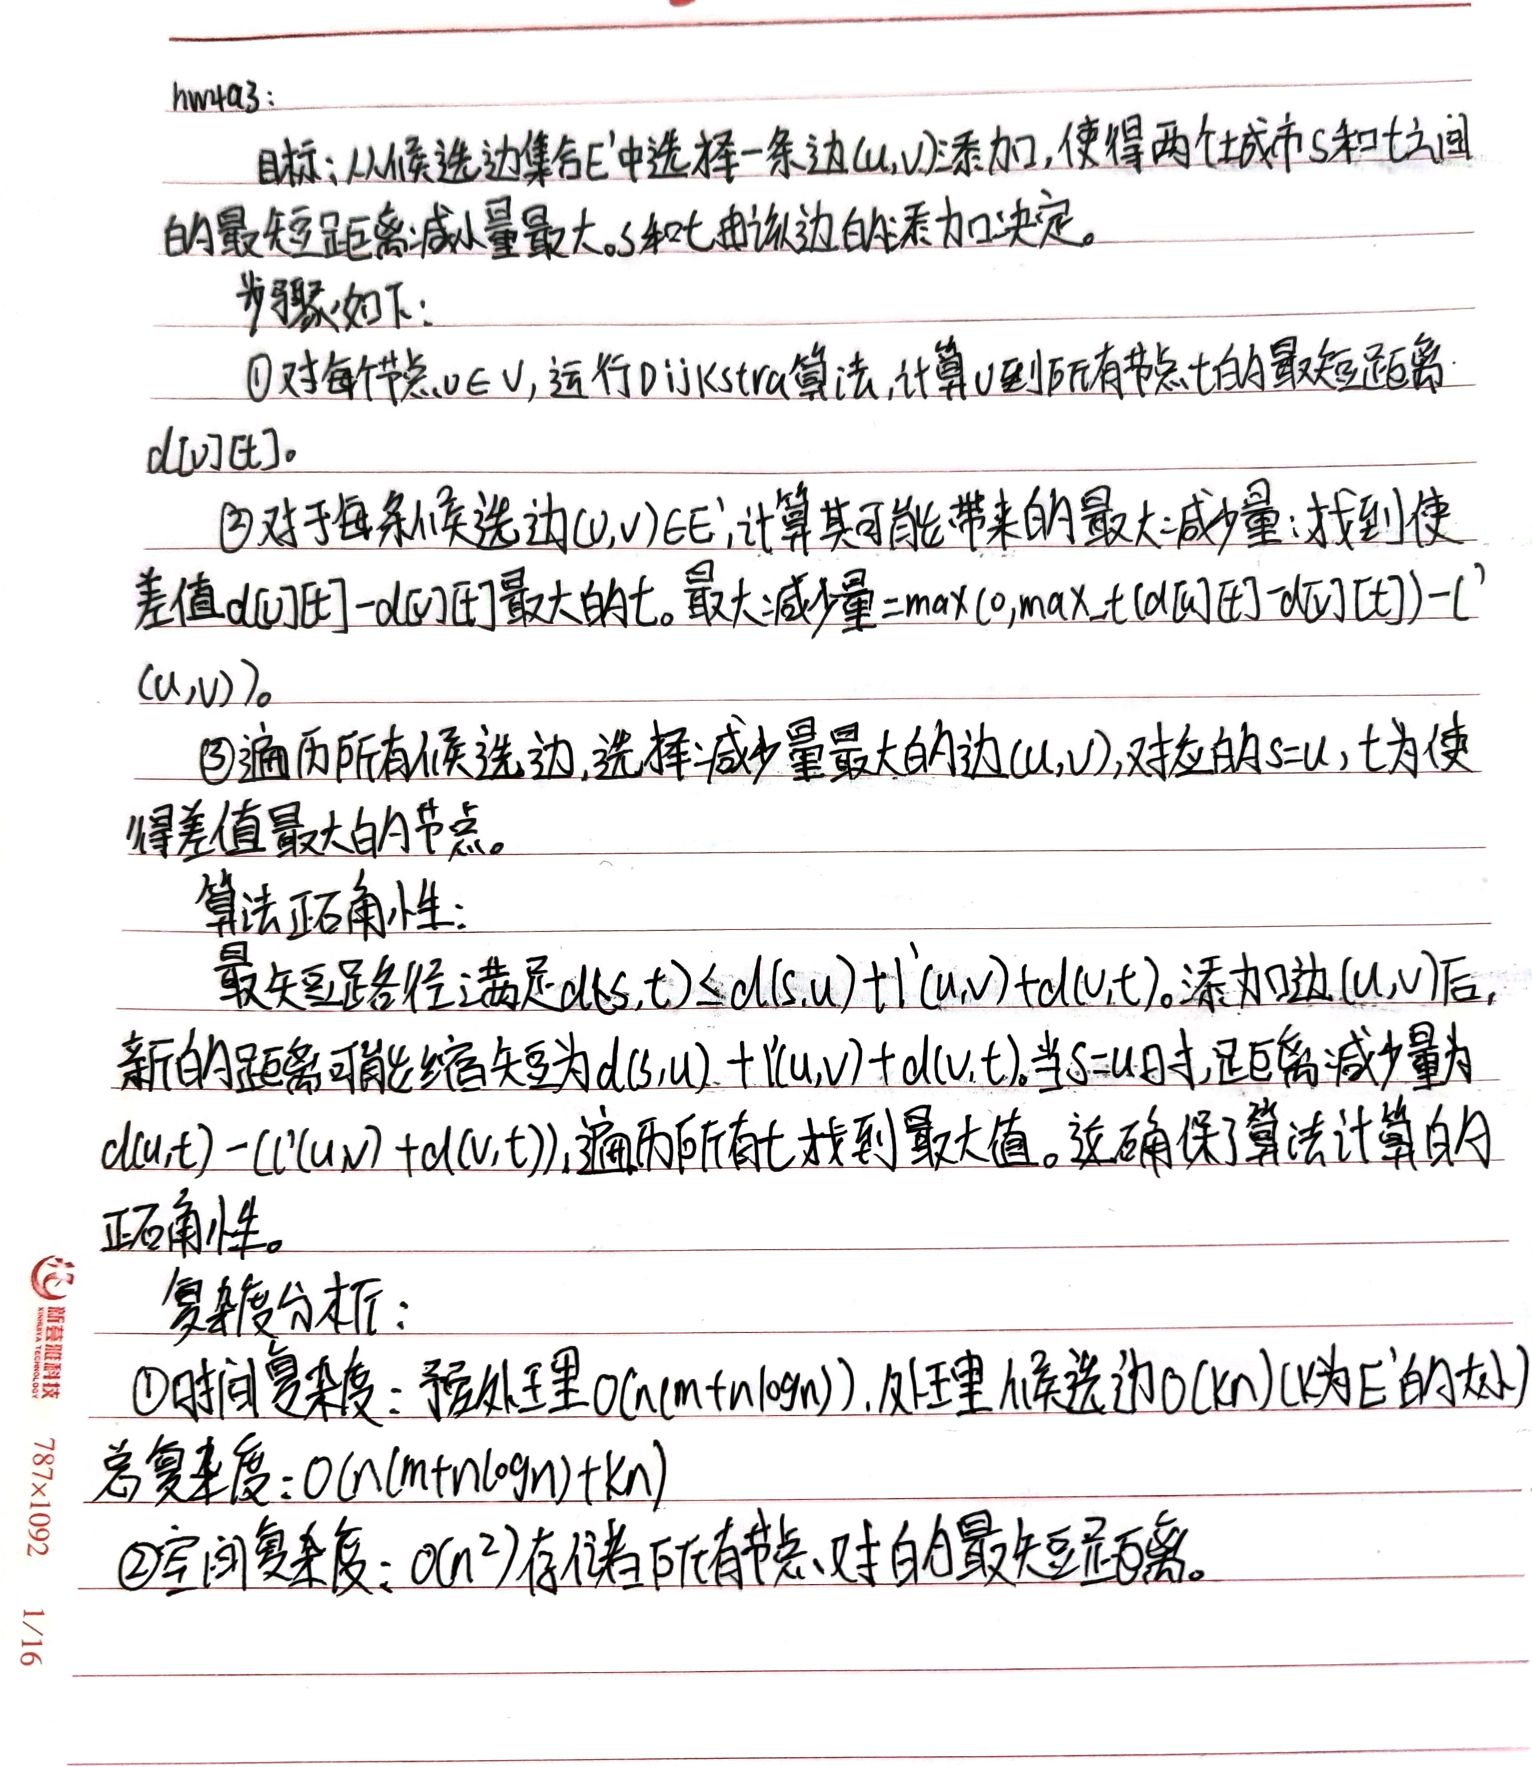 hw4q3:
目标:从候选边集合E'中选择一条边(u,v)添加,使得两个城市s和t之间
的最短距离减小量最大。s和t由该边的添加决定。
步骤如下:
①对每个节点υ∈V,运行Dijkstra算法,计算υ到所有节点t的最短距离
d[υ][t]。
②对于每条候选边(υ,v)∈E',计算其可能带来的最大减少量:找到使
差值d[υ][t]-d[v][t]最大的t。最大减少量=max(0,max_t(d[u][t]-d[v][t])-l'
(u,v))。
③遍历所有候选边,选择减少量最大的边(u,v),对应的s=u,t为使
得差值最大的节点。
算法正确性:
最短路径满足d(s,t)≤d(s,u)+l'(u,v)+d(v,t)。添加边(u,v)后,
新的距离可能缩短为d(s,u)+l'(u,v)+d(v,t)。当s=u时,距离减少量为
d(u,t)-(l'(u,v)+d(v,t)),遍历所有t找到最大值。这确保了算法计算的
正确性。
复杂度分析:
①时间复杂度:预处理O(n(m+nlogn)).处理候选边O(kn)(k为E'的大小)
总复杂度:O(n(m+nlogn)+kn)
②空间复杂度:O(n²)存储所有节点对的最短距离。
新蓉雅科技
XINRUIYA TECHNOLOGY
787×1092
1/16